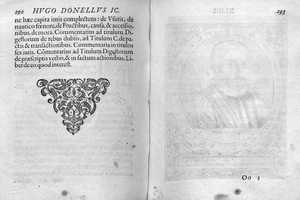 292 HVGO DONELLVS IC.
ne hæc capita iuris complectens: de Vsuris, de
nautico fœnore, de Fructibus, causa, & accessio-
nibus, de mora. Commentarius ad titulum Di-
gestorum de rebus dubiis, ad Titulum C. de pa-
ctis & transactionibus. Commentaria in titulos
Commentarius ad Titulum Digestorum
de præscriptis verbis, & in factum actionibus. Li-
ber de eo quod interest.
293
Oo 3